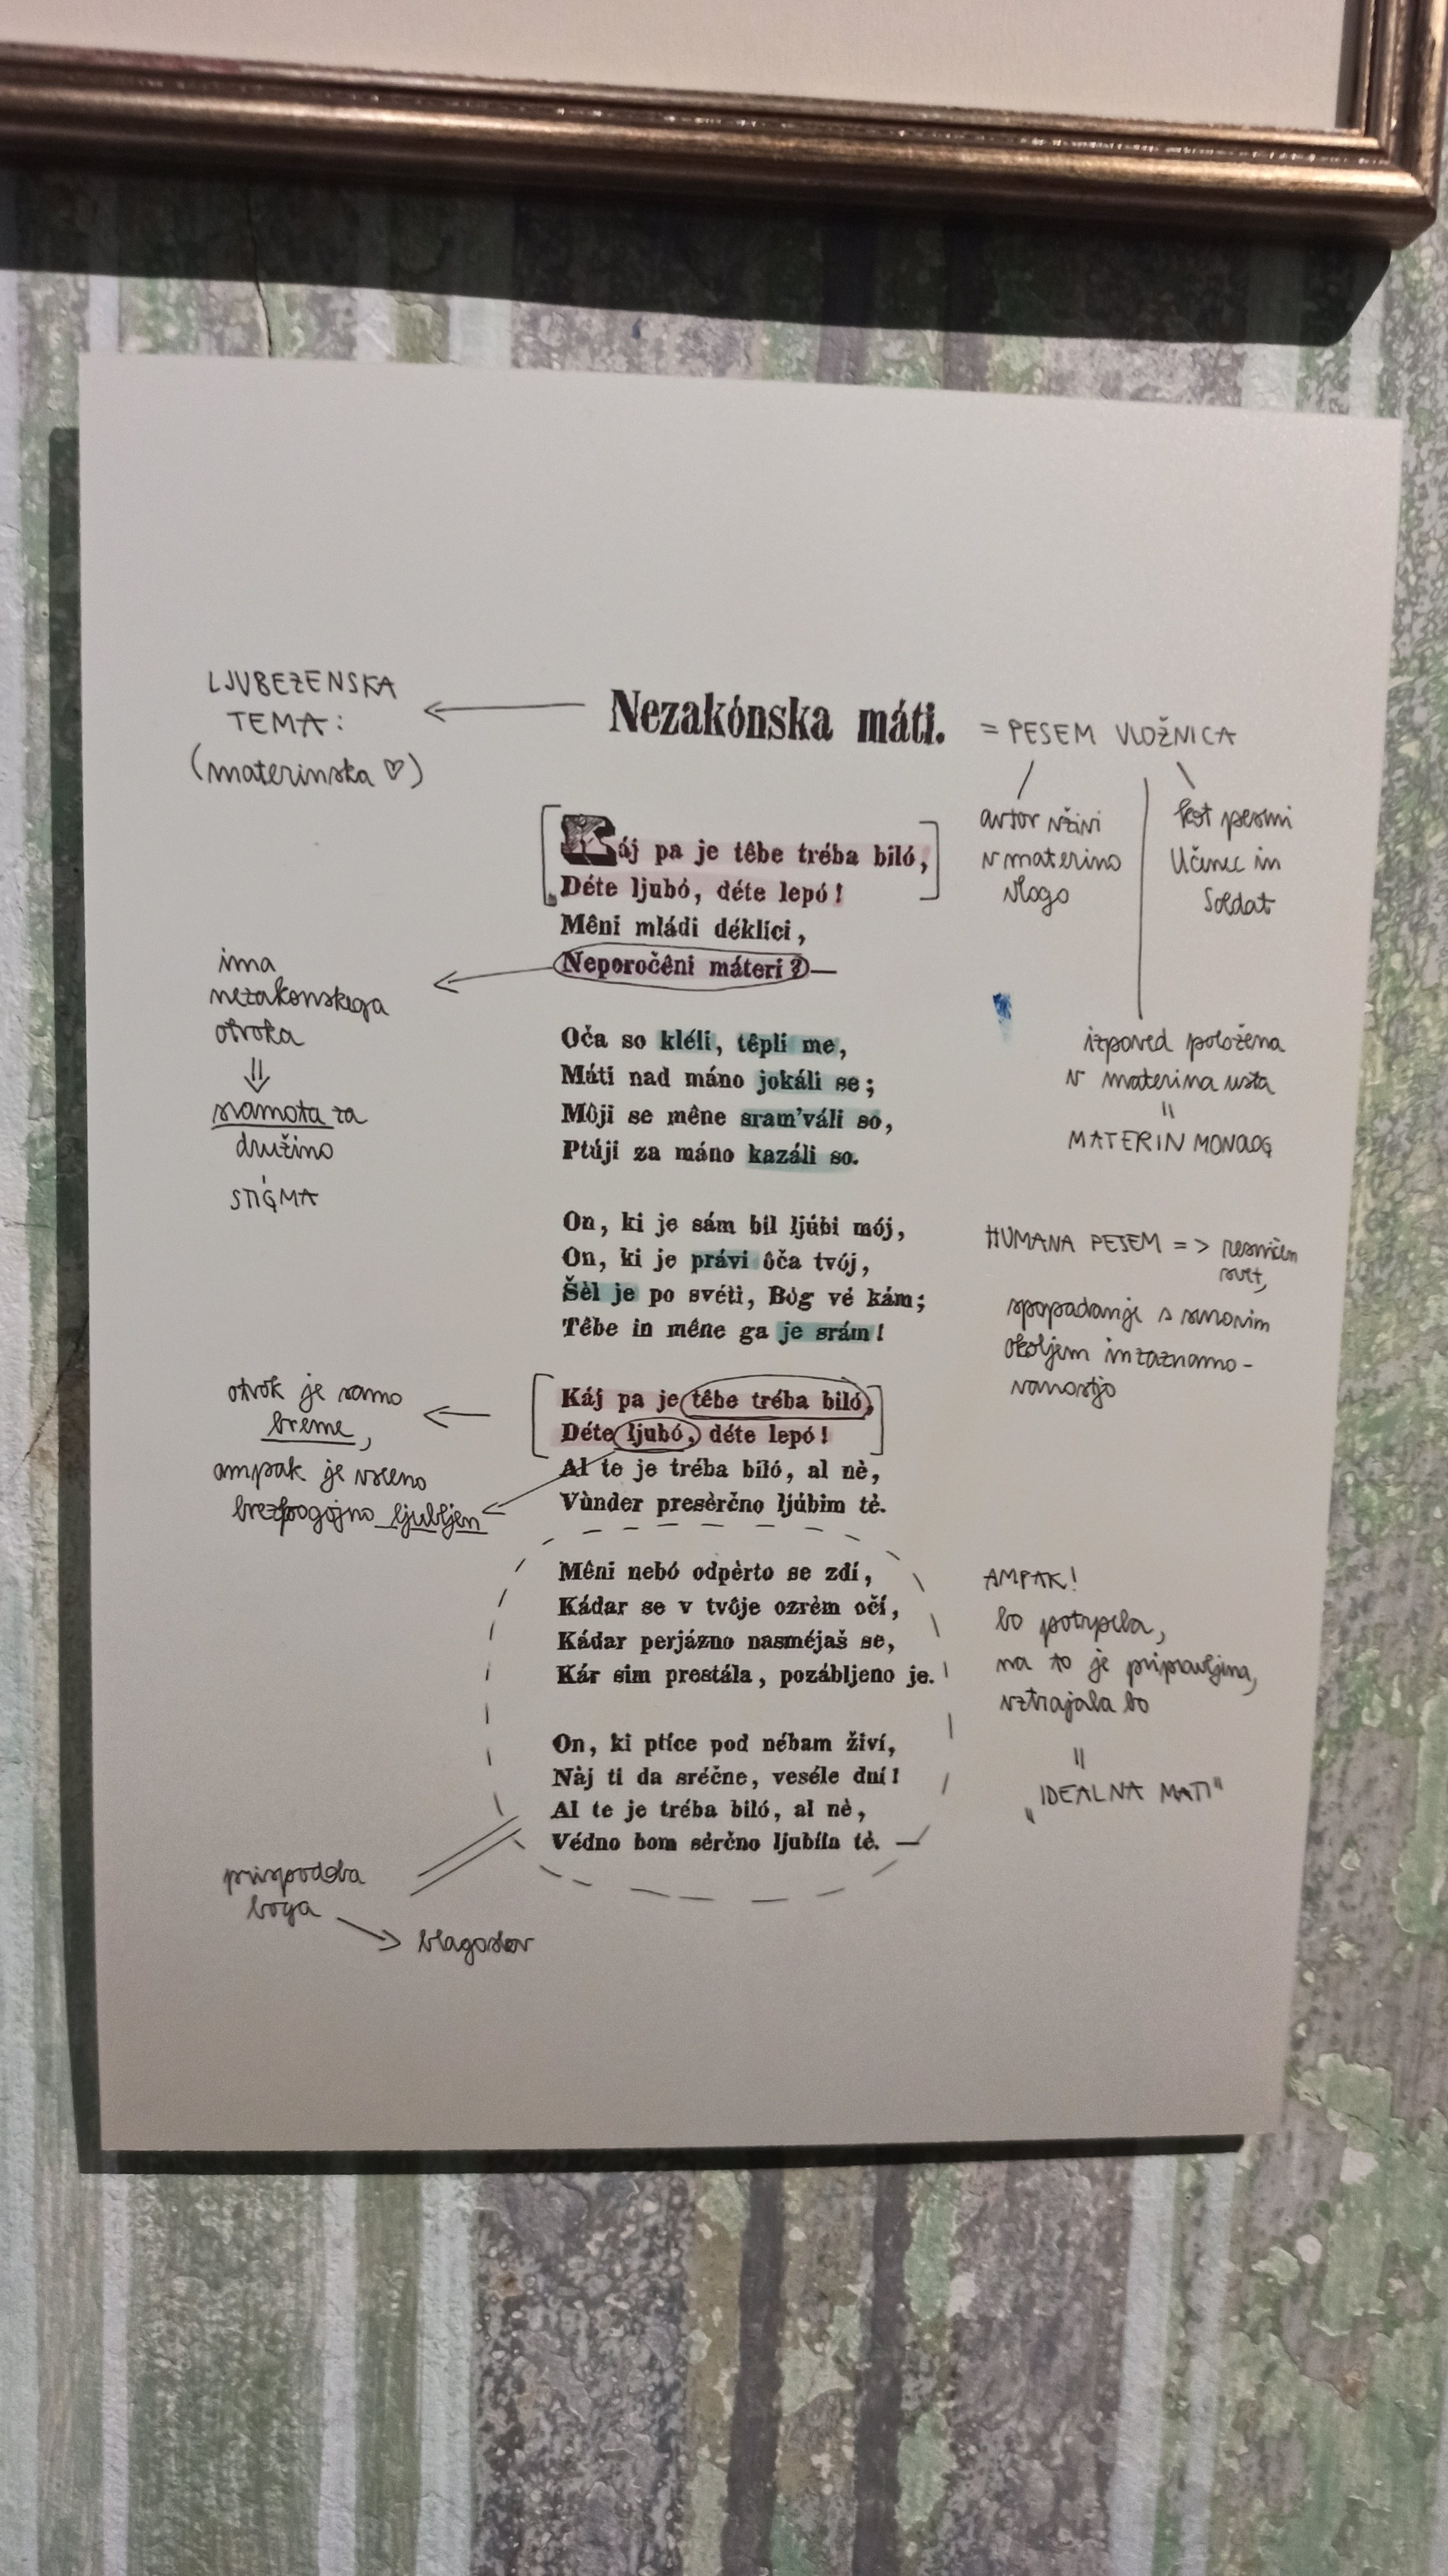 LJUBEZENSKA
TEMA:
(materinska ♡)
Nezakónska máti.
= PESEM VLOŽNICA
avtor vživi
v materino
vlogo
kot pesmi
Učenec in
Soldat
izpoved položena
v materina usta
=
MATERIN MONOLOG
Káj pa je têbe tréba biló,
Déte ljubó, déte lepó!
Mêni mládi déklici,
Neporočêni máteri?—
ima
nezakonskega
otroka
⇓
sramota za
družino
STIGMA
Oča so kléli, têpli me,
Máti nad máno jokáli se;
Môji se mêne sram'váli so,
Ptúji za máno kazáli so.
On, ki je sám bil ljúbi mój,
On, ki je právi ôča tvój,
Šèl je po svéti, Bóg vé kám;
Têbe in mêne ga je srám!
HUMANA PESEM => resničen
svet,
spopadanje s
okoljem in zaznamo-
vanostjo
Káj pa je têbe tréba biló,
Déte ljubó, déte lepó!
Al te je tréba biló, al nè,
Vùnder presèrčno ljúbim tè.
otrok je samo
breme,
ampak je vseeno
brezpogojno ljubljen
Mêni nebó odpèrto se zdí,
Kádar se v tvôje ozrèm očí,
Kádar perjázno nasméjaš se,
Kár sim prestála, pozábljeno je.
On, ki ptíce pod nébam živí,
Nàj ti da sréčne, veséle dní!
Al te je tréba biló, al nè,
Védno bom sèrčno ljubíla tè. —
AMPAK!
bo potrpela,
na to je pripravljena,
vztrajala bo
=
"IDEALNA MATI"
prispodoba
boga
blagoslov